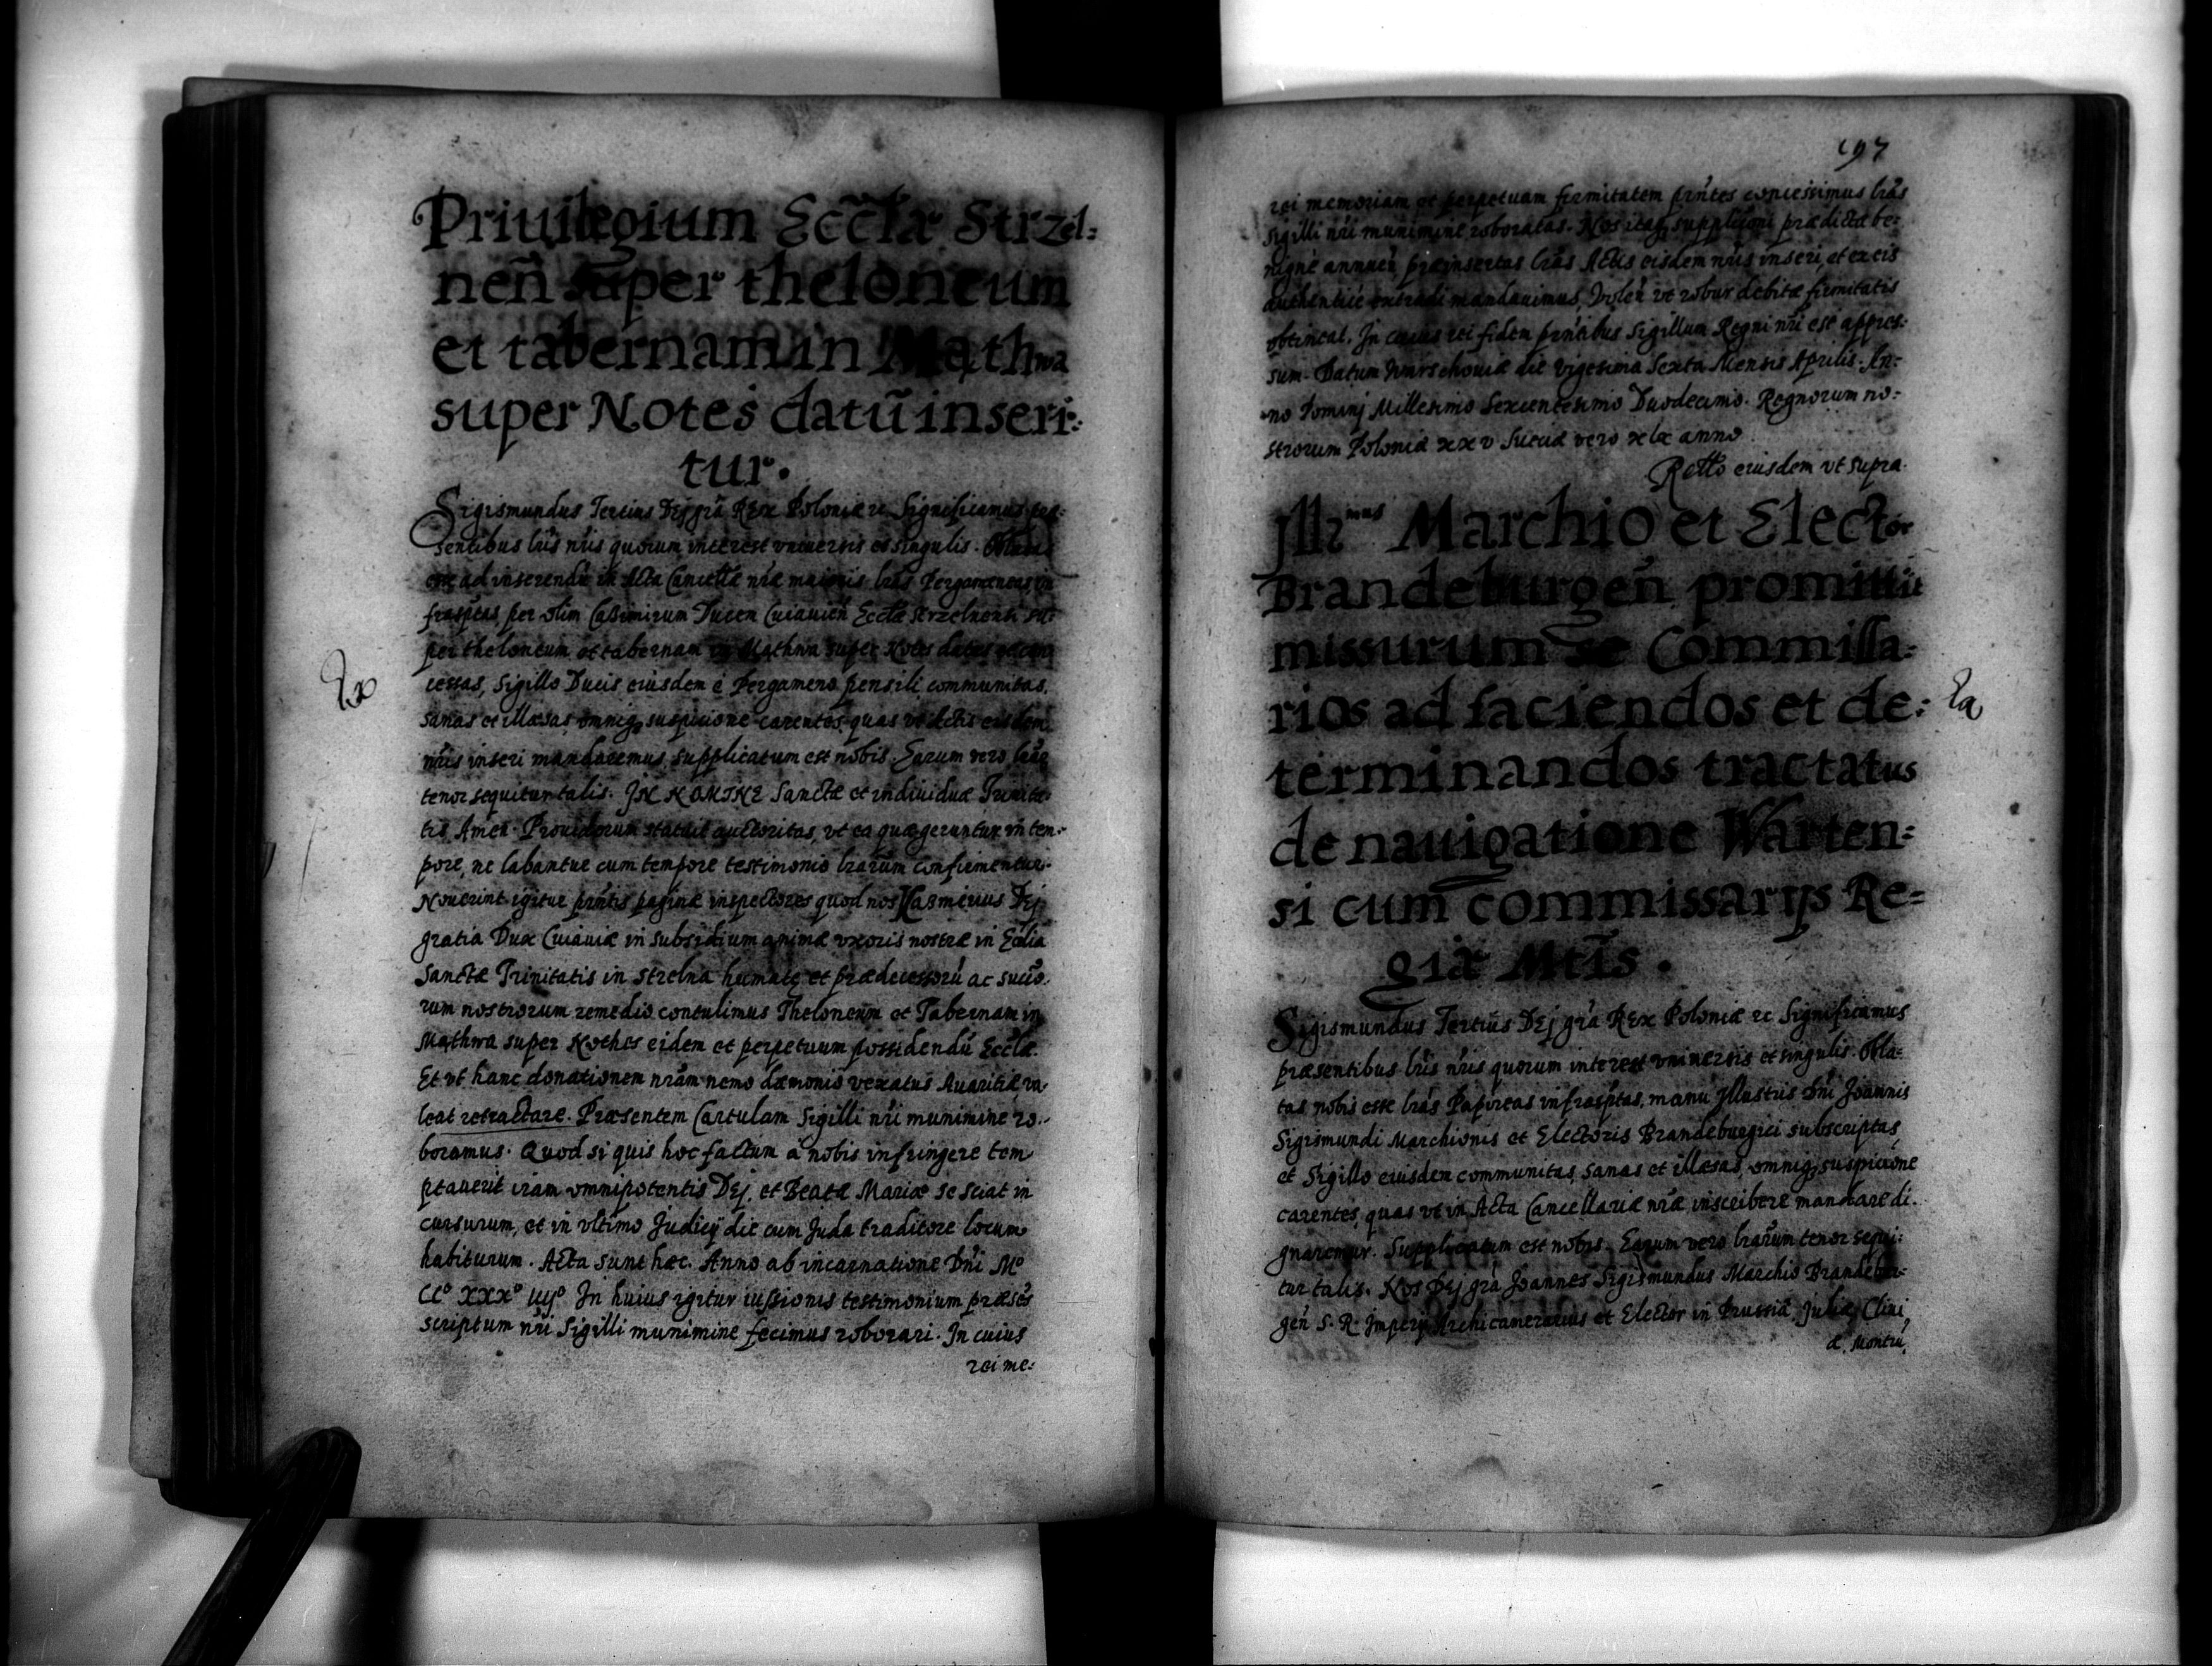 Priuilegium Eccłæ Strzel:
nen̄ super theloneum
et tabernam in Mathwa
super Notes datū inseri:
tur.
Sigismundus Tertius Dej grā REx Poloniæ ec Significamus præ:
sentibus lr̄is nr̄is quorum interest vniuersis et singulis.
ad inserendū in Acta Cancellæ nr̄æ maioris lrās Pergameneas in
frasptas, per olim Casimirum Ducem Cuiauien̄ Ecclæ Strzelnensi su:
per theloneum et tabernam in Mathwa super Notes datas et con
cessas, Sigillo Ducis eiusdem è Pergameno pensili communitas,
sanas et illæsas, omniq suspicione carentes, quas vt Actis eisdem
nr̄is inseri mandaremus, supplicatum est nobis. Earum vero lrār
tenor sequitur talis. IN NOMINE Sanctæ et indiuiduæ Trinita:
tis Amen. Prouidorum statuit auctoritas, vt ea quæ geruntur in tem:
pore, ne labantur cum tempore testimonio lrārum confirmentur.
Nouerint igitur prn̄tis paginæ inspectores quod nos Kasmirus Dej
gratia Dux Cuiauiæ in subsidium animæ vxoris nostræ in Ecclia
Sanctæ Trinitatis in Strelna humatę et prædecessorū ac succō
rum nostrorum remedio contulimus Theloneum et Tabernam in
Mathwa super Nothes eidem et perpetuum possidendū Ecclæ.
Et vt hanc donationem nrām nemo dæmonio vexatus Auaritiæ, va
leat retractare. Præsentem Cartulam Sigilli nr̄i munimine ro:
boramus. Quod si quis hoc factum a nobis infringere tem
ptauerit iram omnipotentis Dej, et Beatæ Mariæ se sciat in
cursurum, et in vltimo Judicij die cum Juda traditore locum
habiturum. Acta sunt hæc. Anno ab incarnatione Dn̄i Mº
CCº XXXº iiijº In huius igitur iussionis testimonium præsēs
scriptum nr̄i Sigilli munimine fecimus roborari. In cuius
rei me:
197
rei memoriam et perpetuam firmitatem prn̄tes concessimus lrās
sigilli nr̄i munimine roboratas. Nos itaq supplicōni prædictæ be:
nigne annueñ præinsertas lrās Actis eisdem nr̄is inseri, et ex eis
authenticè extradi mandauimus, Voleñ vt robur debitæ firmitatis
obtineat. In cuius rei fidem prn̄tibus Sigillum Regni nr̄i est appres:
sum. Datum Warschouiæ die Vigesima Sexta Mensis Aprilis. An:
no Dominj Millesimo Sexcentesimo Duodecimo. Regnorum no:
strorum Poloniæ xxv Sueciæ vero xix anno.
Rello eiusdem vt supra.
Jllrmus Marchio et Elector
Brandeburgen̄ promittit
missurum se Commissa:
rios ad faciendos et de:
terminandos tractatus
de nauigatione Warten:
si cum commissarijs Re:
giæ Mtis.
Sigismundus Tertius Dej grā REx Poloniæ ec Significamus
præsentibus lr̄is nr̄is quorum interest vniuersis et singulis. Obla:
tas nobis esse lrās Papireas infrasptas, manu Jllustris Dn̄i Joannis
Sigismundi Marchionis et Electoris Brandeburgici subscriptas,
et Sigillo eiusdem communitas, sanas et illæsas, omniq suspicione
carentes, quas vt in Acta Cancellariæ nr̄æ inscribere mandare di.
gnaremur. Supplicatum est nobis. Earum vero lrārum tenor sequi:
tur talis. Nos Dej grā Joannes Sigismundus Marchio Brandebur:
gen̄ S. R. Imperij Archicamerarius et Elector in Prussia, Juliæ, Cliui
æ, Montiū,